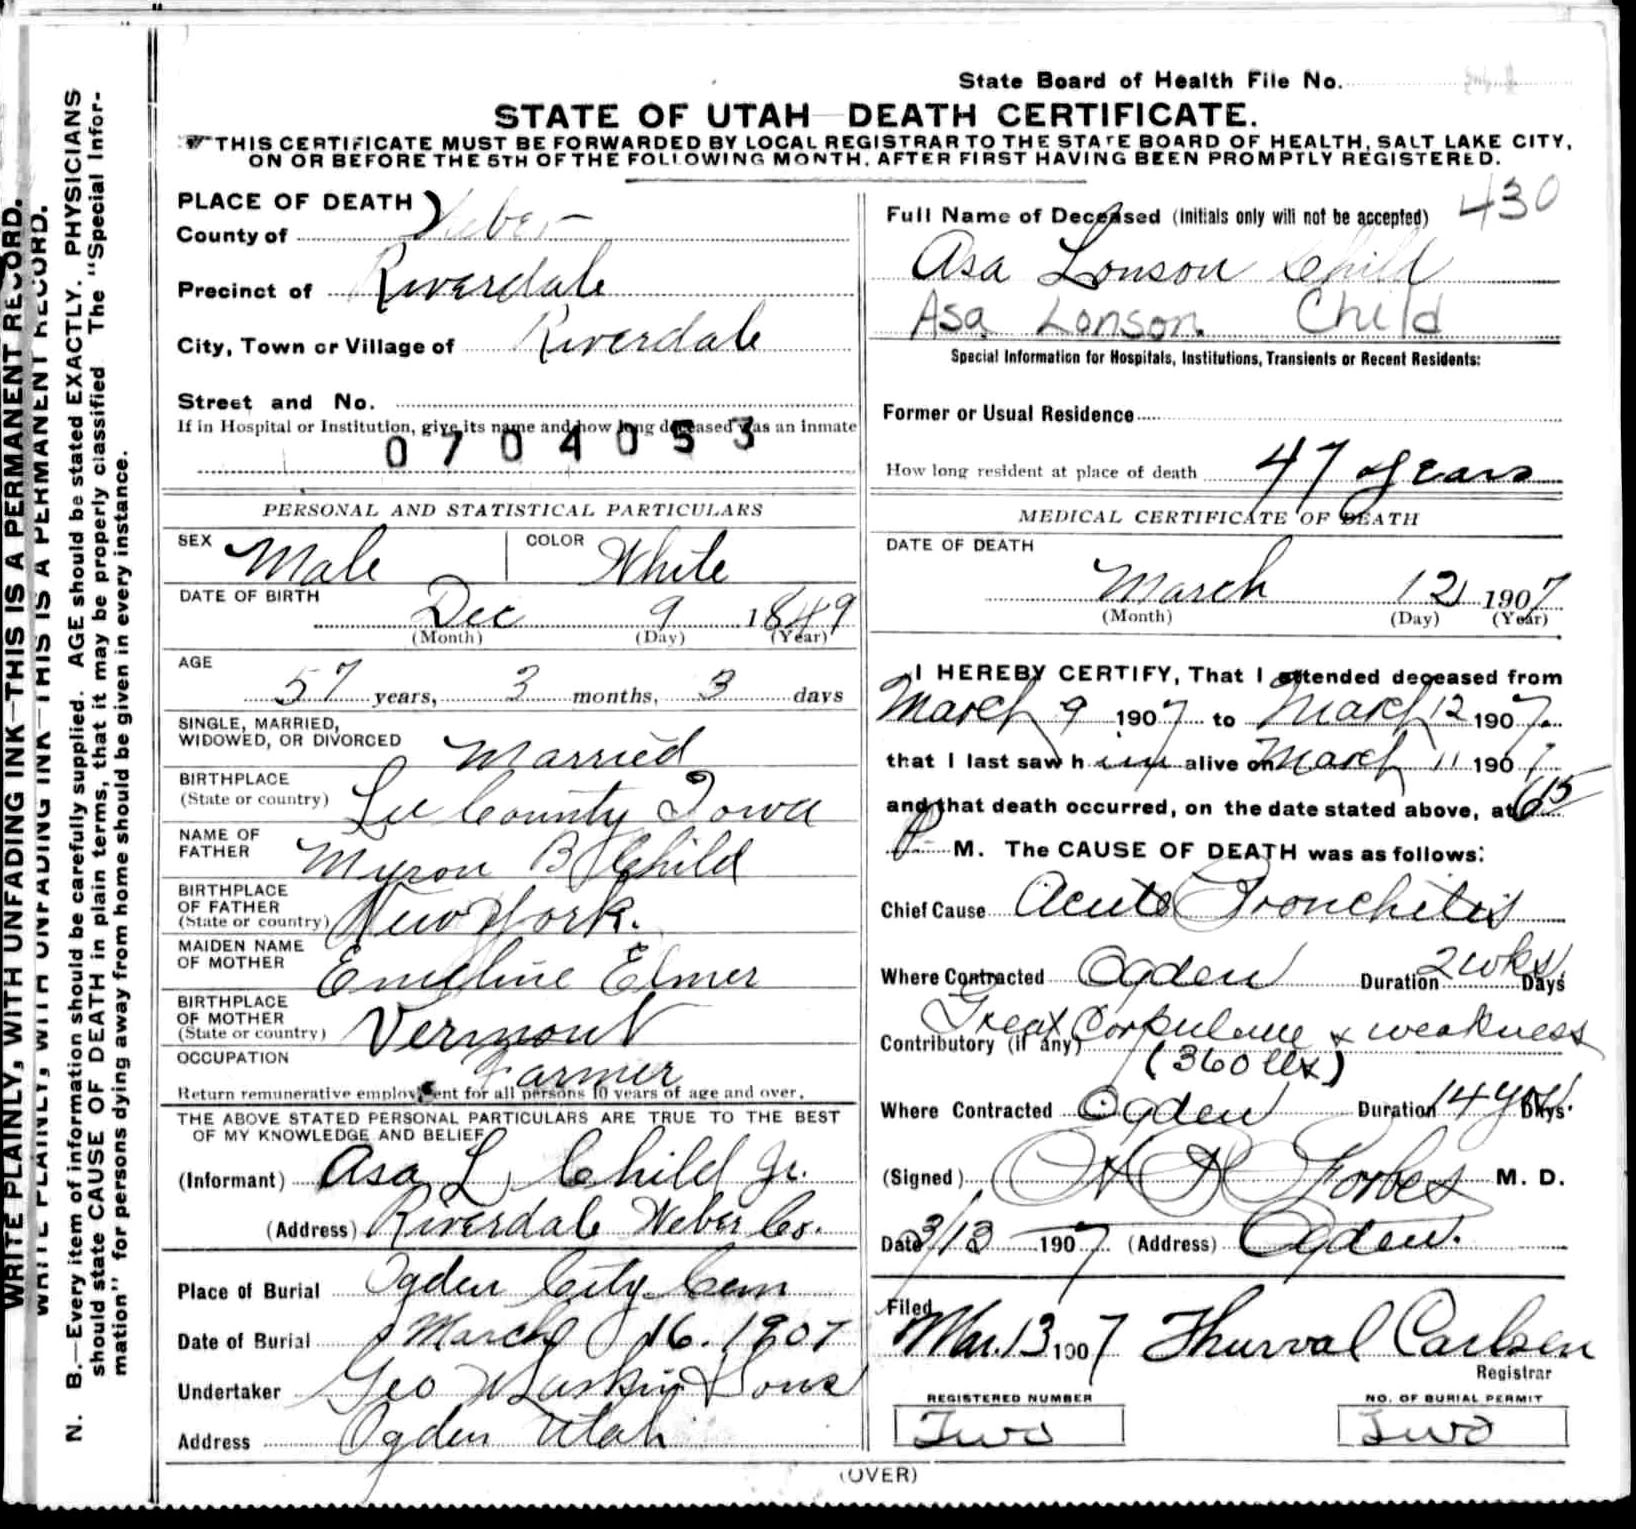 WRITE PLAINLY, WITH UNFADING INK—THIS IS A PERMANENT RECORD.
WRITE PLAINLY, WITH UNFADING INK—THIS IS A PERMANENT RECORD.
N. B.—Every item of information should be carefully supplied. AGE should be stated EXACTLY. PHYSICIANS
should state CAUSE OF DEATH in plain terms, that it may be properly classified The "Special Infor-
mation" for persons dying away from home should be given in every instance.
State Board of Health File No.
STATE OF UTAH—DEATH CERTIFICATE.
THIS CERTIFICATE MUST BE FORWARDED BY LOCAL REGISTRAR TO THE STATE BOARD OF HEALTH, SALT LAKE CITY,
ON OR BEFORE THE 5TH OF THE FOLLOWING MONTH, AFTER FIRST HAVING BEEN PROMPTLY REGISTERED.
PLACE OF DEATH
County of Weber
Precinct of Riverdale
City, Town or Village of Riverdale
Street and No.
If in Hospital or Institution, give its name and how long deceased was an inmate
0704053
PERSONAL AND STATISTICAL PARTICULARS
SEX Male COLOR White
DATE OF BIRTH
Dec 9 1849
(Month) (Day) (Year)
AGE
57 years, 3 months, 3 days
SINGLE, MARRIED,
WIDOWED, OR DIVORCED Married
BIRTHPLACE
(State or country) Lee County Iowa
NAME OF
FATHER Myron B Child
BIRTHPLACE
OF FATHER
(State or country) New York.
MAIDEN NAME
OF MOTHER Emeline Elmer
BIRTHPLACE
OF MOTHER
(State or country) Vermont
OCCUPATION Farmer
Return remunerative employment for all persons 10 years of age and over.
THE ABOVE STATED PERSONAL PARTICULARS ARE TRUE TO THE BEST
OF MY KNOWLEDGE AND BELIEF
(Informant) Asa L Child Jr.
(Address) Riverdale Weber Co.
Place of Burial Ogden City Cem
Date of Burial March 16. 1907
Undertaker Geo W Larkin & Sons
Address Ogden Utah
Full Name of Deceased (Initials only will not be accepted) 430
Asa Lonson Child
Asa Lonson Child
Special Information for Hospitals, Institutions, Transients or Recent Residents:
Former or Usual Residence
How long resident at place of death 47 years
MEDICAL CERTIFICATE OF DEATH
DATE OF DEATH
March 12 1907
(Month) (Day) (Year)
I HEREBY CERTIFY, That I attended deceased from
March 9 1907 to March 12 1907.
that I last saw h im alive on March 11 1907
and that death occurred, on the date stated above, at 615
P. M. The CAUSE OF DEATH was as follows:
Chief Cause Acute Bronchitis
Where Contracted Ogden Duration 2 wks Days
Contributory (if any) Great Corpulence & weakness
(360 lbs)
Where Contracted Ogden Duration 14 yrs Days.
(Signed) Forbes M. D.
Date 3/13 1907 (Address) Ogden.
Filed
Mar. 13 1907 Thurval Carlsen
Registrar
REGISTERED NUMBER NO. OF BURIAL PERMIT
Two Two
(OVER)